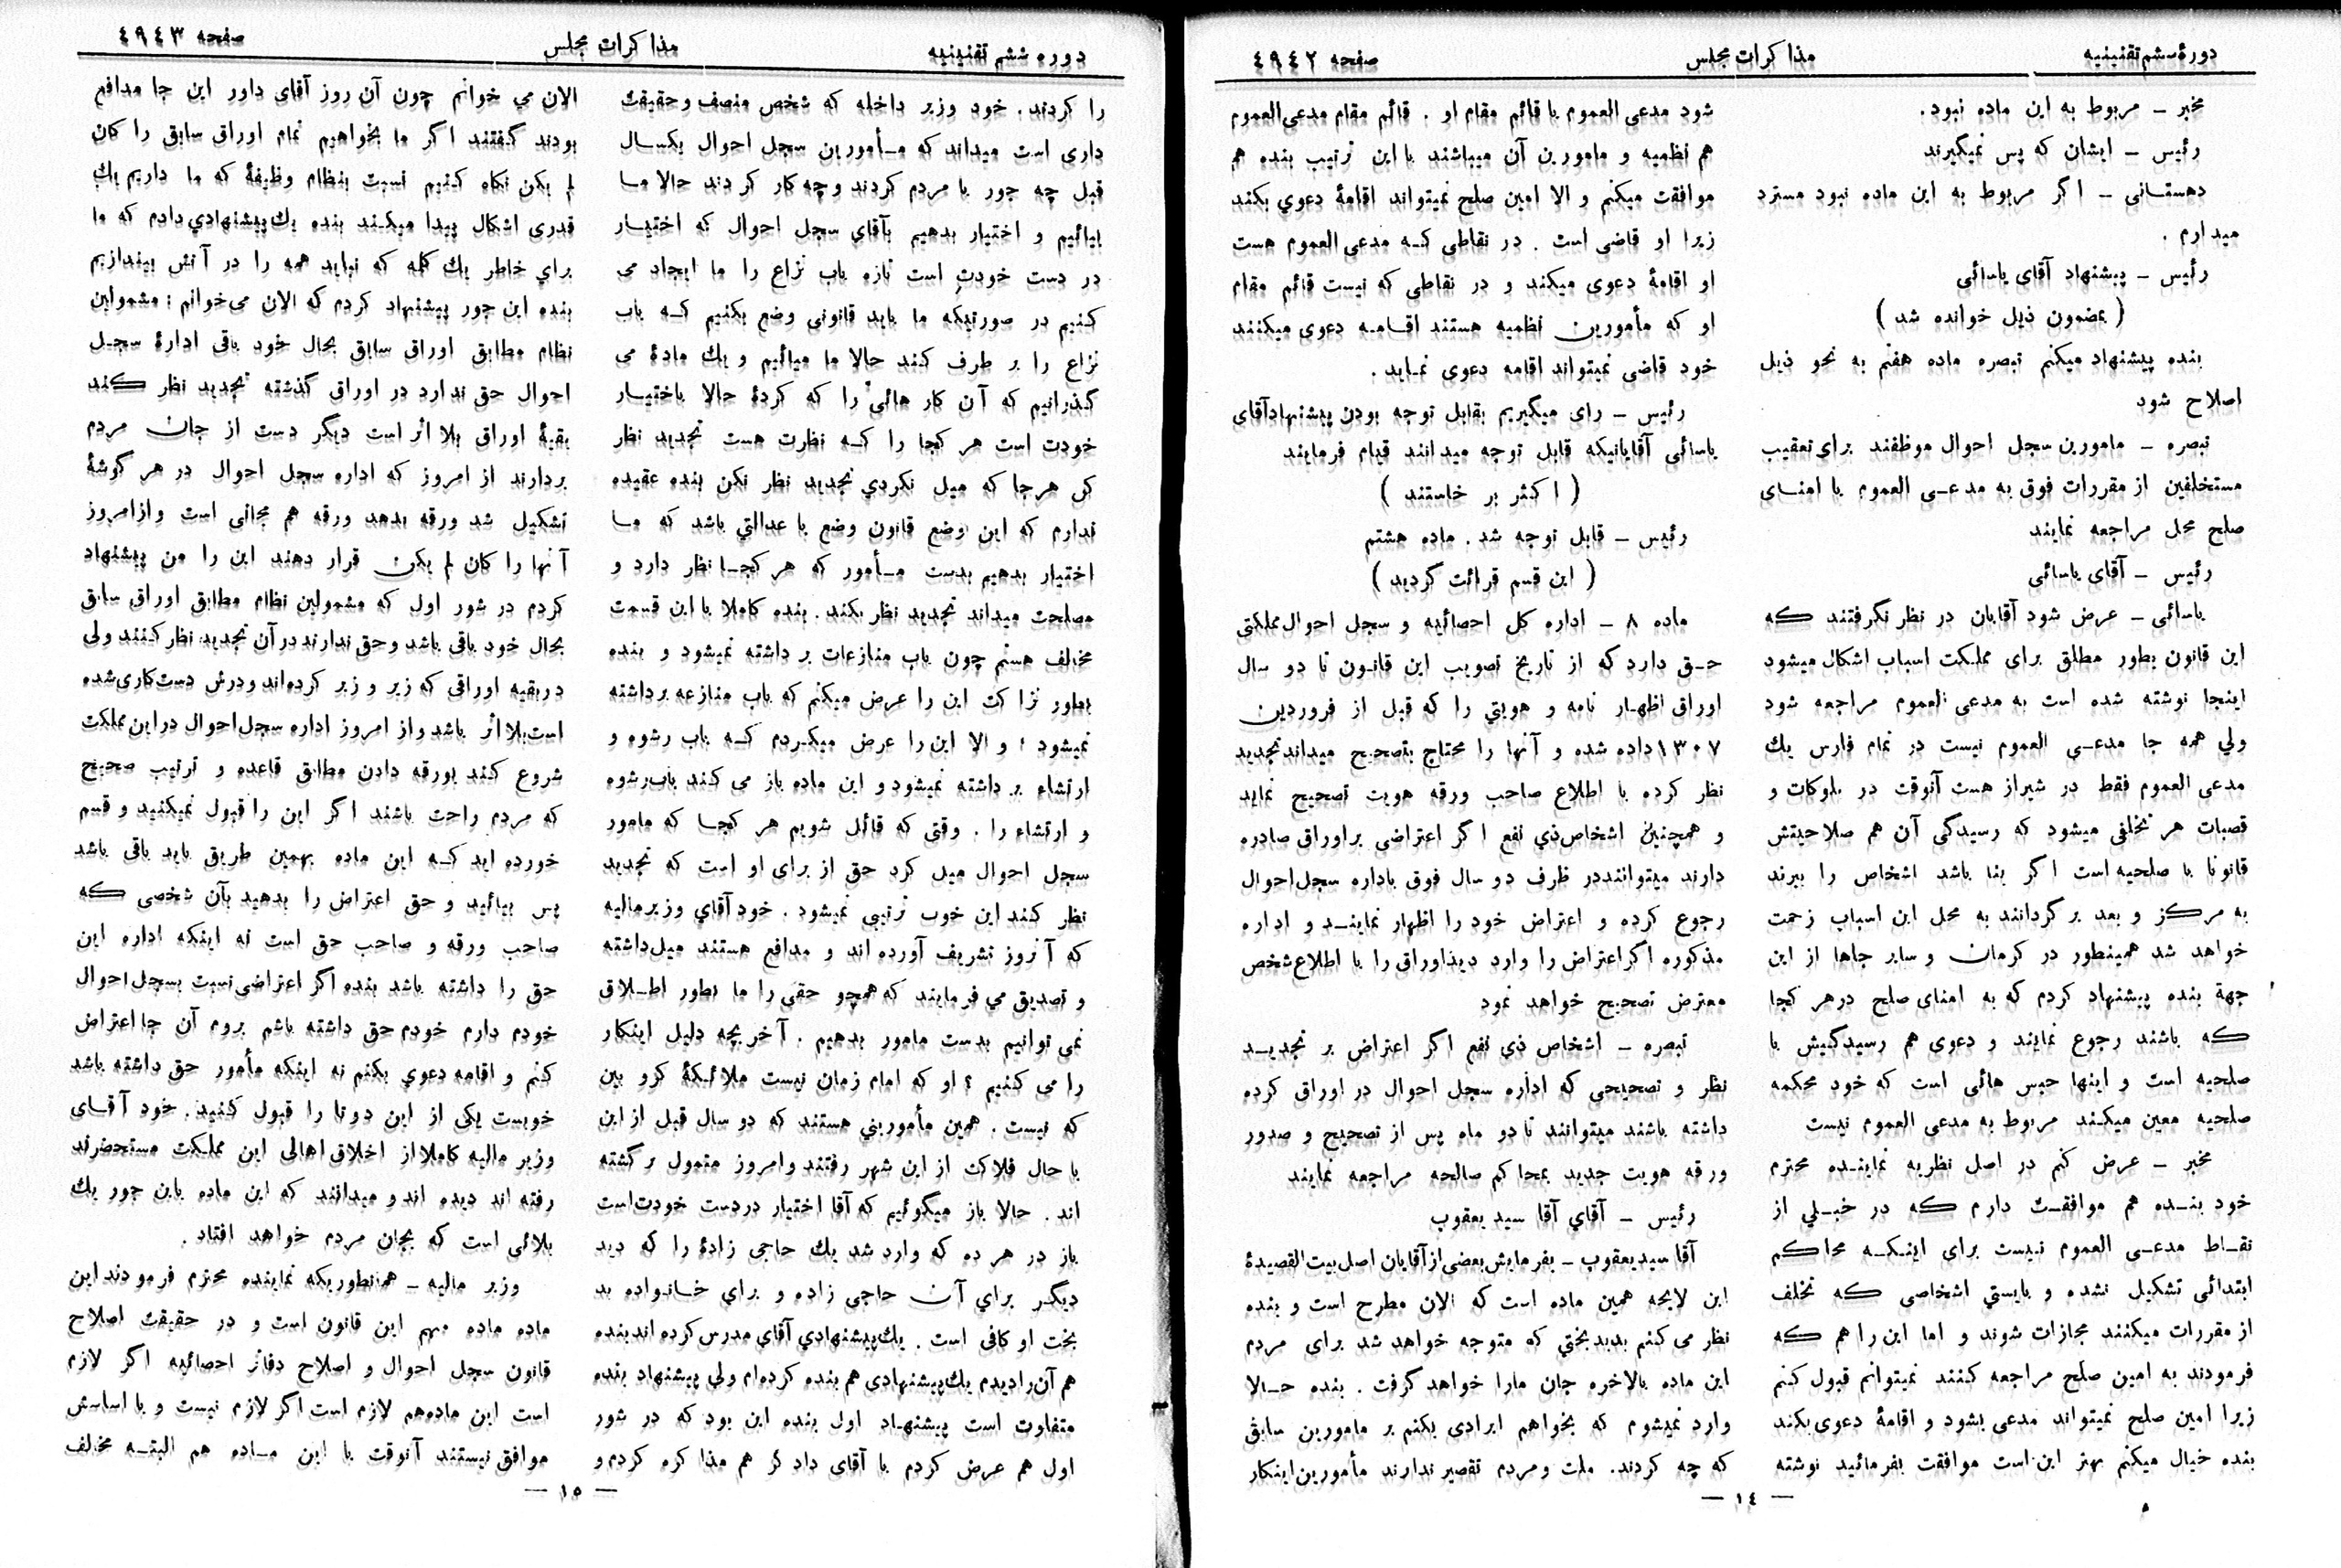 دورهٔ ششم تقنینیه
مذاکرات مجلس
صفحه ٤٩٤٢
مخبر ـ مربوط به این ماده نبود.
رئیس ـ ایشان که پس نمیگیرند
دهستانی ـ اگر مربوط به این ماده نبود مسترد
میدارم .
رئیس ـ پیشنهاد آقای یاسائی
( بمضمون ذیل خوانده شد )
بنده پیشنهاد میکنم تبصره ماده هفتم به نحو ذیل
اصلاح شود
تبصره ـ مامورین سجل احوال موظفند برای تعقیب
متخلفین از مقررات فوق به مدعی العموم یا امنای
صلح محل مراجعه نمایند
رئیس ـ آقای یاسائی
یاسائی ـ عرض شود آقایان در نظر نگرفتند که
این قانون بطور مطلق برای مملکت اسباب اشکال میشود
اینجا نوشته شده است به مدعی العموم مراجعه شود
ولی همه جا مدعی العموم نیست در تمام فارس یك
مدعی العموم فقط در شیراز هست آنوقت در بلوکات و
قصبات هر تخلفی میشود که رسیدگی آن هم صلاحیتش
قانونا با صلحیه است اگر بنا باشد اشخاص را ببرند
به مرکز و بعد برگردانند به محل این اسباب زحمت
خواهد شد همینطور در کرمان و سایر جاها از این
جهة بنده پیشنهاد کردم که به امنای صلح در هر کجا
که باشند رجوع نمایند و دعوی هم رسیدگیش با
صلحیه است و اینها حبس هائی است که خود محکمه
صلحیه معین میکند مربوط به مدعی العموم نیست
مخبر ـ عرض کنم در اصل نظریه نماینده محترم
خود بنده هم موافقت دارم که در خیلی از
نقاط مدعی العموم نیست برای اینکه محاکم
ابتدائی تشکیل نشده و بایستي اشخاصی که تخلف
از مقررات میکنند مجازات شوند و اما این را هم که
فرمودند به امین صلح مراجعه کنند نمیتوانم قبول کنم
زیرا امین صلح نمیتواند مدعی بشود و اقامهٔ دعوی بکند
بنده خیال میکنم بهتر این است موافقت بفرمائید نوشته
شود مدعی العموم یا قائم مقام او . قائم مقام مدعی العموم
هم نظمیه و مامورین آن میباشند با این ترتیب بنده هم
موافقت میکنم و الا امین صلح نمیتواند اقامهٔ دعوي بکند
زیرا او قاضی است . در نقاطی که مدعی العموم هست
او اقامهٔ دعوی میکند و در نقاطی که نیست قائم مقام
او که مأمورین نظمیه هستند اقامه دعوی میکنند
خود قاضی نمیتواند اقامه دعوی نماید .
رئیس ـ رای میگیریم بقابل توجه بودن پیشنهاد آقای
یاسائی آقایانیکه قابل توجه میدانند قیام فرمایند
( اکثر بر خاستند )
رئیس ـ قابل توجه شد . ماده هشتم
( این قسم قرائت گردید )
ماده ٨ ـ اداره کل احصائیه و سجل احوال مملکتی
حق دارد که از تاریخ تصویب این قانون تا دو سال
اوراق اظهار نامه و هویتي را که قبل از فروردین
١٣٠٧ داده شده و آنها را محتاج بتصحیح میداند تجدید
نظر کرده با اطلاع صاحب ورقه هویت تصحیح نماید
و همچنین اشخاص ذي نفع اگر اعتراضی بر اوراق صادره
دارند میتوانند در ظرف دو سال فوق باداره سجل احوال
رجوع کرده و اعتراض خود را اظهار نمایند و اداره
مذکوره اگر اعتراض را وارد دید اوراق را با اطلاع شخص
معترض تصحیح خواهد نمود
تبصره ـ اشخاص ذي نفع اگر اعتراض بر تجدید
نظر و تصحیحی که اداره سجل احوال در اوراق کرده
داشته باشند میتوانند تا دو ماه پس از تصحیح و صدور
ورقه هویت جدید بمحاکم صالحه مراجعه نمایند
رئیس ـ آقاي آقا سید یعقوب
آقا سید یعقوب ـ بفرمایش بعضی از آقایان اصل بیت القصیدهٔ
این لایحه همین ماده است که الان مطرح است و بنده
نظر می کنم بدبدبختي که متوجه خواهد شد برای مردم
این ماده بالاخره جان مارا خواهد گرفت . بنده حالا
وارد نمیشوم که بخواهم ایرادی بکنم بر مامورین سابق
که چه کردند. ملت و مردم تقصیر ندارند مأمورین اینکار
— ١٤ —
دوره ششم تقنینیه
مذاکرات مجلس
صفحه ٤٩٤٣
را کردند . خود وزیر داخله که شخص منصف و حقیقت
داری است میداند که مأمورین سجل احوال یکسال
قبل چه جور با مردم کردند و چه کار کردند حالا ما
بیائیم و اختیار بدهیم بآقاي سجل احوال که اختیار
در دست خودت است تازه باب نزاع را ما ایجاد می
کنیم در صورتیکه ما باید قانونی وضع بکنیم که باب
نزاع را بر طرف کند حالا ما میآئیم و یك مادهٔ می
گذرانیم که آن کار هائی را که کردهٔ حالا باختیار
خودت است هر کجا را که نظرت هست تجدید نظر
کن هرجا که میل نکردي تجدید نظر نکن بنده عقیده
ندارم که این وضع قانون وضع با عدالتي باشد که ما
اختیار بدهیم بدست مأمور که هر کجا نظر دارد و
مصلحت میداند تجدید نظر بکند . بنده کاملا با این قسمت
مخالف هستم چون باب منازعات برداشته نمیشود و بنده
بطور نزاکت این را عرض میکنم که باب منازعه برداشته
نمیشود ؛ و الا این را عرض میکردم که باب رشوه و
ارتشاء برداشته نمیشود و این ماده باز می کند باب رشوه
و ارتشاء را . وقتی که قائل شویم هر کجا که مامور
سجل احوال میل کرد حق از برای او است که تجدید
نظر کند این خوب ترتیبی نمیشود . خود آقاي وزیر مالیه
که آنروز تشریف آورده اند و مدافع هستند میل داشته
و تصدیق می فرمایند که همچو حقی را ما بطور اطلاق
نمی توانیم بدست مامور بدهیم . آخر بچه دلیل اینکار
را می کنیم ؟ او که امام زمان نیست ملائکهٔ کرو بین
که نیست . همین مأموریني هستند که دو سال قبل از این
با حال فلاکت از این شهر رفتند و امروز متمول برگشته
اند . حالا باز میگوئیم که آقا اختیار در دست خودت است
باز در هر ده که وارد شد یك حاجی زادهٔ را که دید
دیگر براي آن حاجی زاده و براي خانواده بد
بخت او کافی است . یك پیشنهادي آقاي مدرس کرده اند بنده
هم آن را دیدم یك پیشنهادی هم بنده کرده ام ولی پیشنهاد بنده
متفاوت است پیشنهاد اول بنده این بود که در شور
اول هم عرض کردم با آقای دادگر هم مذاکره کردم و
الان مي خوانم چون آن روز آقای داور این جا مدافع
بودند گفتند اگر ما بخواهیم تمام اوراق سابق را کان
لم یکن نگاه کنیم نسبت بنظام وظیفهٔ که ما داریم یك
قدری اشکال پیدا میکند بنده یك پیشنهادي دادم که ما
براي خاطر یك کلمه که نباید همه را در آتش بیندازیم
بنده این جور پیشنهاد کردم که الان می خوانم : مشمولین
نظام مطابق اوراق سابق بحال خود باقی ادارهٔ سجل
احوال حق ندارد در اوراق گذشته تجدید نظر کند
بقیهٔ اوراق بلا اثر است دیگر دست از جان مردم
بردارند از امروز که اداره سجل احوال در هر گوشهٔ
تشکیل شد ورقه بدهد ورقه هم مجانی است و از امروز
آنها را کان لم یکن قرار دهند این را من پیشنهاد
کردم در شور اول که مشمولین نظام مطابق اوراق سابق
بحال خود باقی باشد و حق ندارند در آن تجدید نظر کنند ولی
در بقیه اوراقی که زیر و زبر کرده اند و درش دست کاری شده
است بلا اثر باشد و از امروز اداره سجل احوال در این مملکت
شروع کند بورقه دادن مطابق قاعده و ترتیب صحیح
که مردم راحت باشند اگر این را قبول نمیکنید و قسم
خورده اید که این ماده بهمین طریق باید باقی باشد
پس بیائید و حق اعتراض را بدهید بآن شخصی که
صاحب ورقه و صاحب حق است نه اینکه اداره این
حق را داشته باشد بنده اگر اعتراضی نسبت بسجل احوال
خودم دارم خودم حق داشته باشم بروم آن جا اعتراض
کنم و اقامه دعوي بکنم نه اینکه مأمور حق داشته باشد
خوبست یکی از این دو تا را قبول کنید . خود آقای
وزیر مالیه کاملا از اخلاق اهالی این مملکت مستحضرند
رفته اند دیده اند و میدانند که این ماده باین جور یك
بلائی است که بجان مردم خواهد افتاد .
وزیر مالیه ـ همانطوریکه نماینده محترم فرمودند این
ماده ماده مهم این قانون است و در حقیقت اصلاح
قانون سجل احوال و اصلاح دفاتر احصائیه اگر لازم
است این ماده هم لازم است اگر لازم نیست و با اساسش
موافق نیستند آنوقت با این ماده هم البته مخالف
— ١٥ —